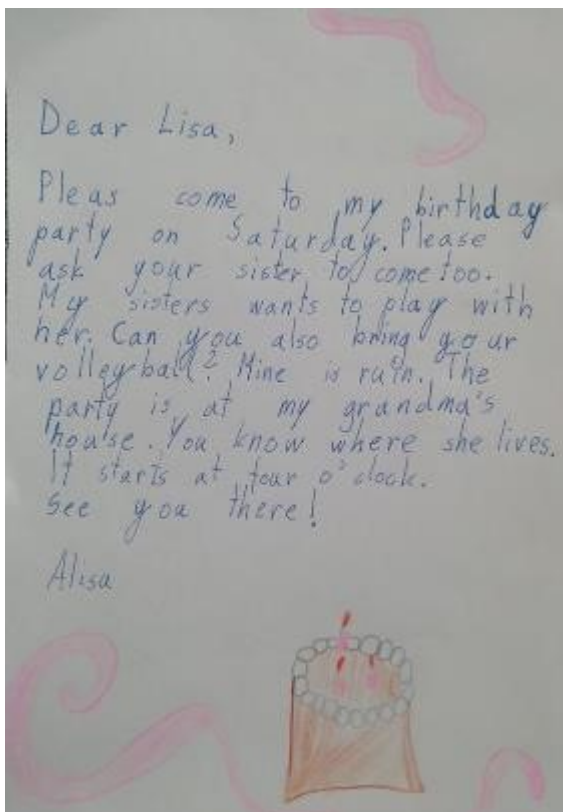 Dear Lisa,
Pleas come to my birthday
party on Saturday. Please
ask your sister to come too.
My sisters wants to play with
her. Can you also bring your
volleyball? Mine is ruin. The
party is at my grandma's
house. You know where she lives.
It starts at four o'clock.
See you there!
Alisa